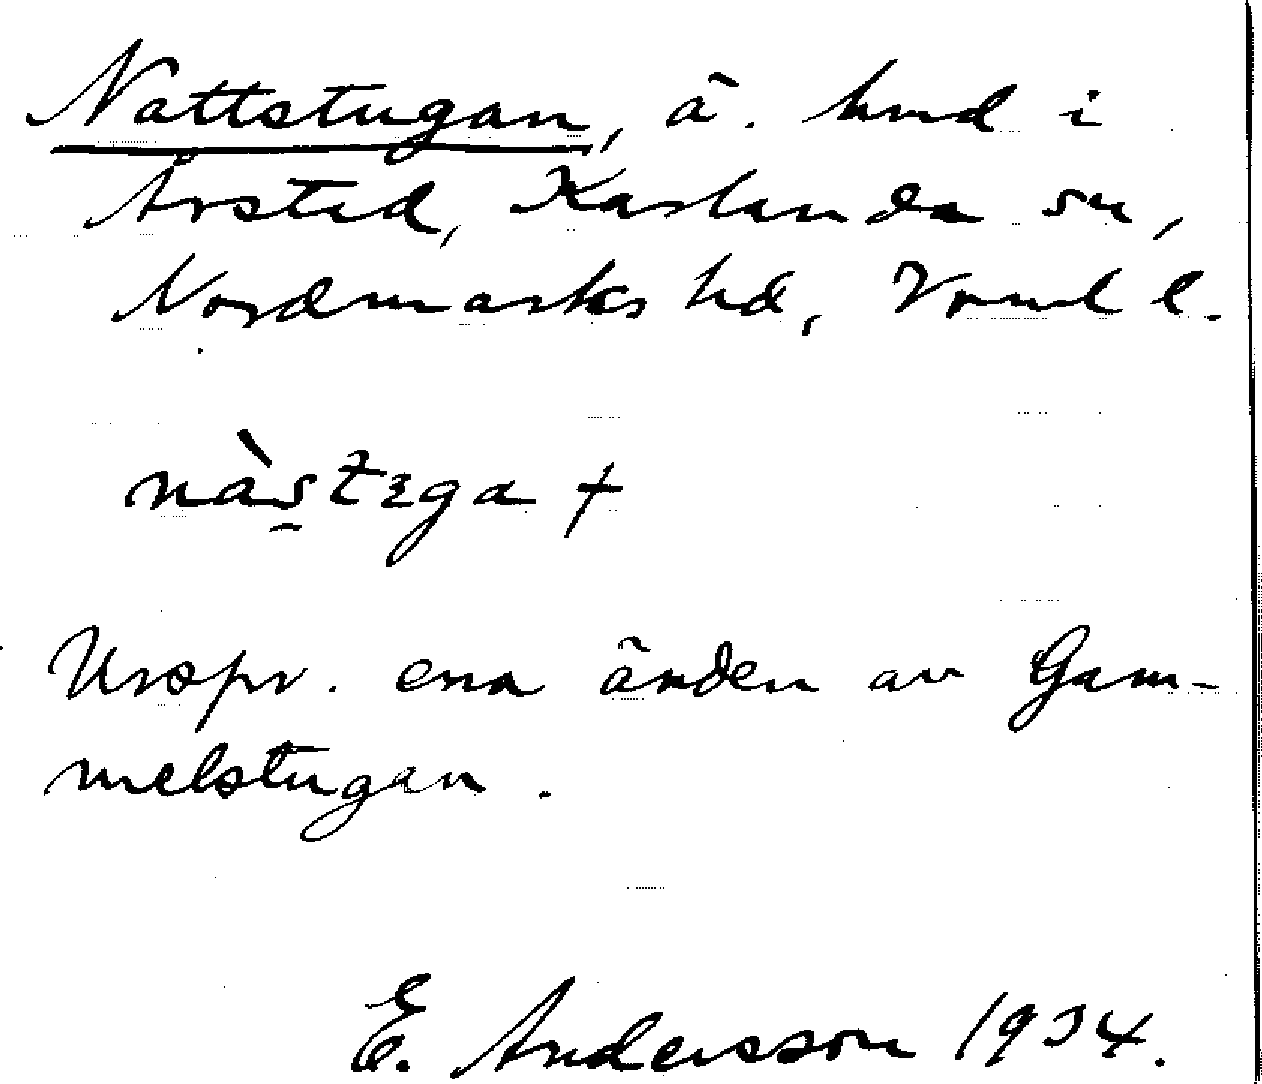 Nattstugan, ä. hmd i
Årstad, Karlanda sn,
Nordmarks hd, Vrml l.
nàs̱tega +
Urspr. ena änden av Gam-
melstugan.
E. Andersson 1934.